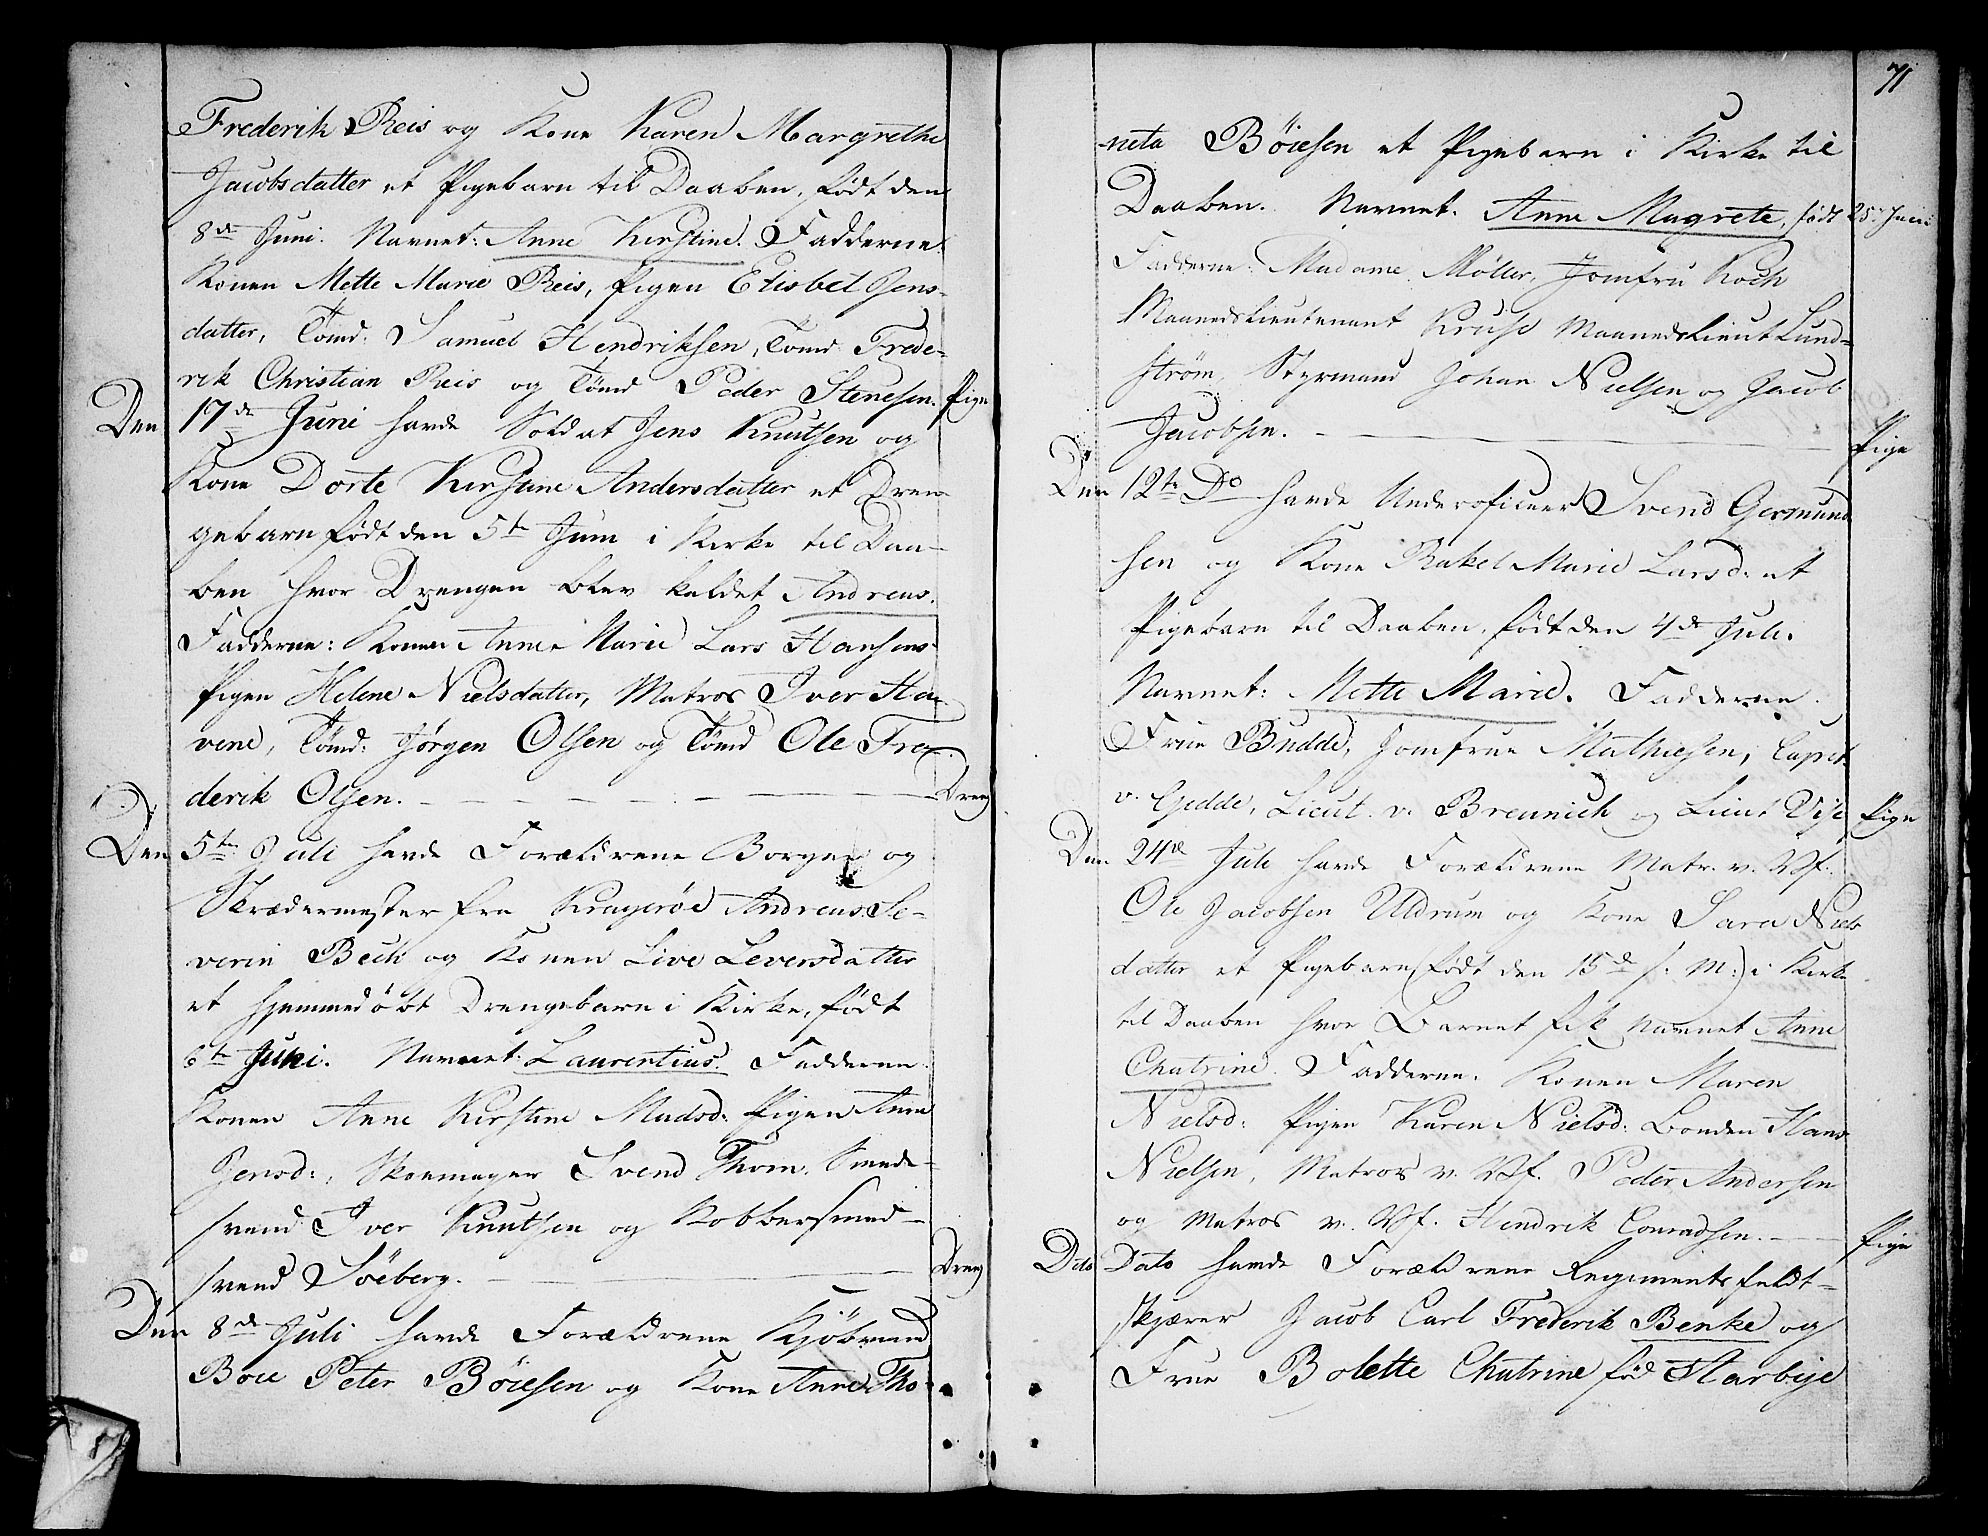 Frederik Reis og Kone Karen Margrethe
Jacobsdatter et Pigebarn til Daaben, født den
8de Juni. Navnet: Anne Kirstine. Fadderne
Konen Mette Marie Reis, Pigen Elisbet Jens-
datter, Tømd: Samuel Hendriksen, Tømd Frede-
rik Christian Reis og Tømd Peder Stenesen. Pige
Den 17de Juni havde Soldat Jens Knutsen og
Kone Dorte Kirstine Andersdatter et Dren-
gebarn født den 5te Juni i Kirke til Daa-
ben hvor Drengen blev kaldet Andreas.
Fadderne: Konen Anne Marie Lars Hansens
Pigen Helene Nielsdatter, Matros Iver Ha-
vene, Tømd: Jørgen Olsen og Tømd Ole Fre-
derik Olsen. Dreng
Den 5te Juli havde Forældrene Borger og
Skrædermester fra Kragerøe Andreas Se-
verin Bech og Konen Live Leversdatter
et hjemmedøbt Drengebarn i Kirke, født
6te Juni. Navnet: Laurentius. Fadderne
Konen Anne Kirstine Madsd: Pigen Anne
Jensd:, Skoemager Svend Thom. Smede-
svend Iver Knutsen og Kobbersmed-
svend Söeberg. Dreng
Den 8de Juli havde Forældrene Kjöbmand
Boie Peter Böiesen og Kone Anne Tho-
71
neta Böiesen et Pigebarn i Kirke til
Daaben. Navnet. Anne Magrete, født 25 Juni
Fadderne: Madame Møller, Jomfru Koch
Maanedslieutenant Kruse Maanedslieut Lund-
strøm, Styrmand Johan Nielsen og Jacob
Jacobsen. Pige
Den 12te Do havde Underoficeer Svend Germund
sen og Kone Rakel Marie Larsd: et
Pigebarn til Daaben, født den 4de Juli.
Navnet: Mette Marie. Fadderne.
Frue Budde, Jomfrue Mathiesen, Capit
v. Gedde, Lieut. v. Breunich og Lieut Pige
Den 24de Juli havde Forældrene Matr. v. Vf.
Ole Jacobsen Uldrum og Kone Sara Niels
datter et Pigebarn (født den 15de s: M:) i Kirke
til Daaben hvor Barnet fik Navnet Anne
Chatrine. Fadderne. Konen Maren
Nielsd: Pigen Karen Nielsd: Bonden Hans
Nielsen, Matros v. Vf. Peder Andersen
og Matros v. Vf. Hendrik Conradsen. Pige
Dito Dato havde Forældrene Regimentsfeldt-
skjærer Jacob Carl Frederik Benke og
Frue Bolette Chatrine fød Starbye